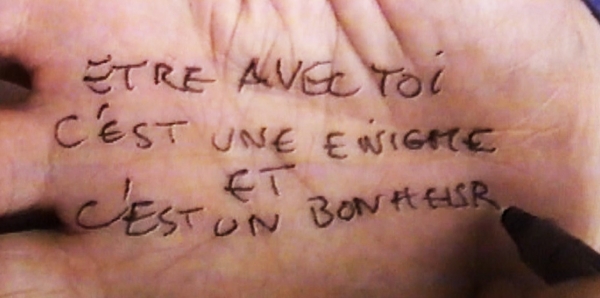 ÊTRE AVEC TOI
C'EST UNE ENIGME
ET
C'EST UN BONHEUR